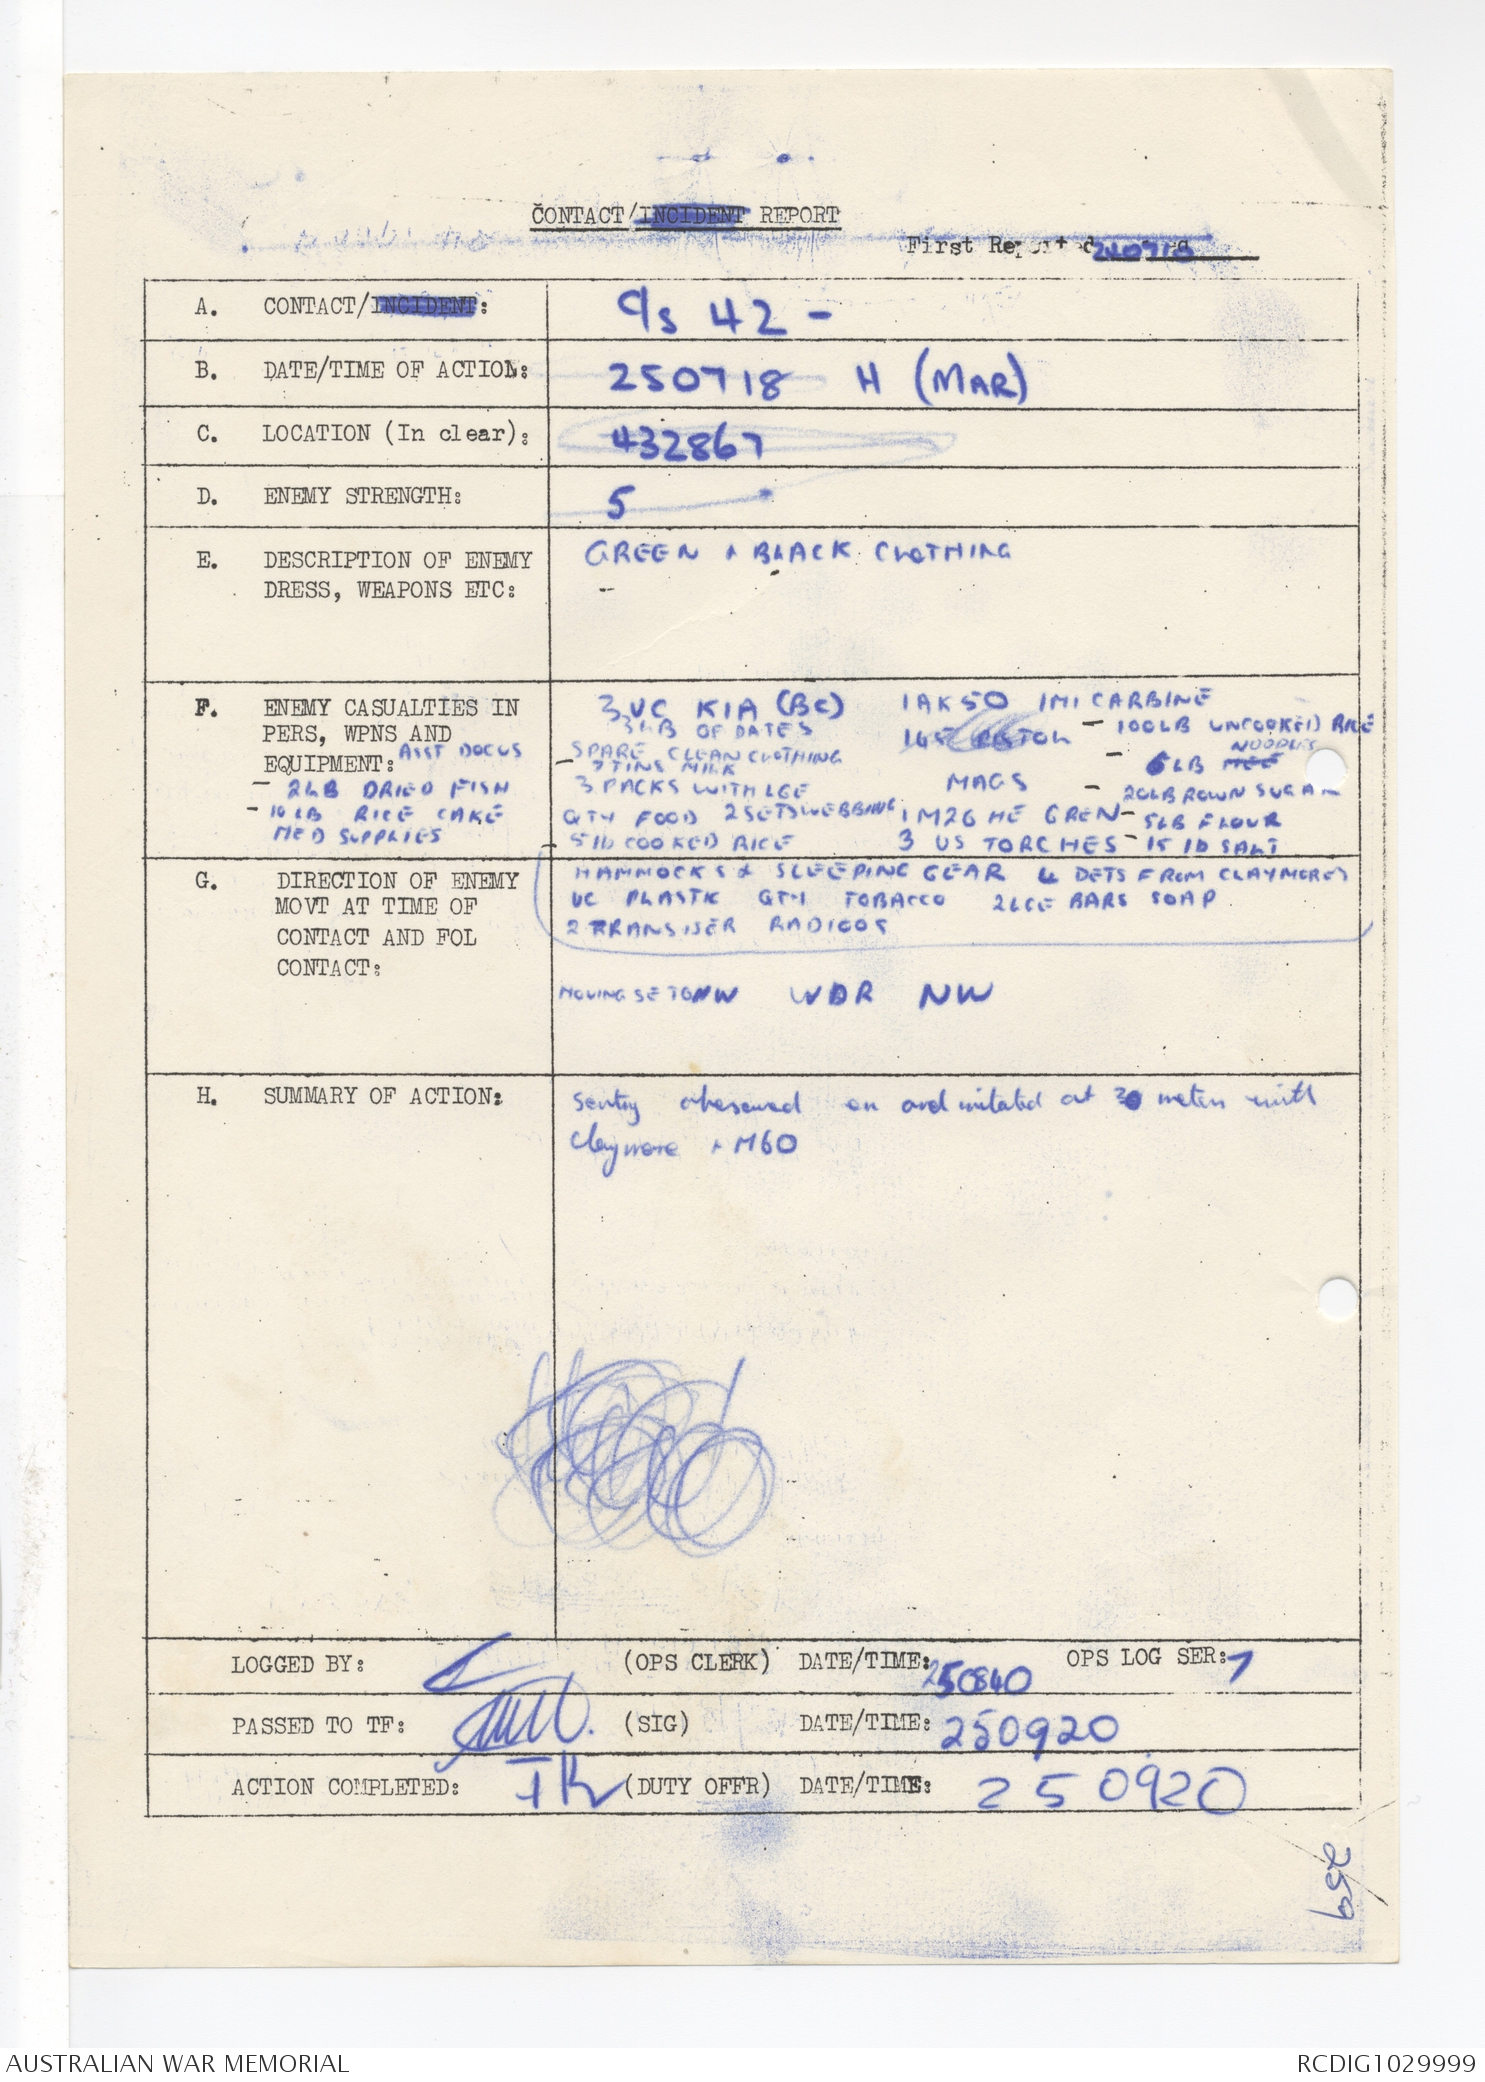 CONTACT/INCIDENT REPORT
First Reported 240718
A. CONTACT/INCIDENT: C/S 42 -
B. DATE/TIME OF ACTION: 250718 H (MAR)
C. LOCATION (In clear): 432867
D. ENEMY STRENGTH: 5
E. DESCRIPTION OF ENEMY GREEN + BLACK CLOTHING
DRESS, WEAPONS ETC: -
F. ENEMY CASUALTIES IN
PERS, WPNS AND
EQUIPMENT: ASST DOCUS
- 2LB DRIED FISH
- 10 LB RICE CAKE
MED SUPPLIES
3 VC KIA (BC)
3LB OF DATES
SPARE CLEAN CLOTHING
- 7 TINS MILK
3 PACKS WITH LGE
QTY FOOD 2 SETS WEBBING
- 5 lb COOKED RICE
1 AK50 1 M1 CARBINE
1 45 PISTOL
MAGS
1 M26 HE GREN
3 US TORCHES
- 100LB UNCOOKED RICE
NOODLES
- 6LB MEE
- 20LB ROWN SUGAR
- 5LB FLOUR
- 15 lb SALT
HAMMOCKS & SLEEPING GEAR 4 DETS FROM CLAYMORES
VC PLASTIC QTY TOBACCO 2 LGE BARS SOAP
2 TRANSISER RADIOOS
G. DIRECTION OF ENEMY
MOVT AT TIME OF
CONTACT AND FOL
CONTACT:
MOVING SE TO NW WDR NW
H. SUMMARY OF ACTION: Sentry observed en and initated at 30 meters with
Claymore + M60
LOGGED BY: (OPS CLERK) DATE/TIME: 250840 OPS LOG SER: 7
PASSED TO TF: (SIG) DATE/TIME: 250920
ACTION COMPLETED: (DUTY OFFR) DATE/TIME: 250920
259
AUSTRALIAN WAR MEMORIAL
RCDIG1029999